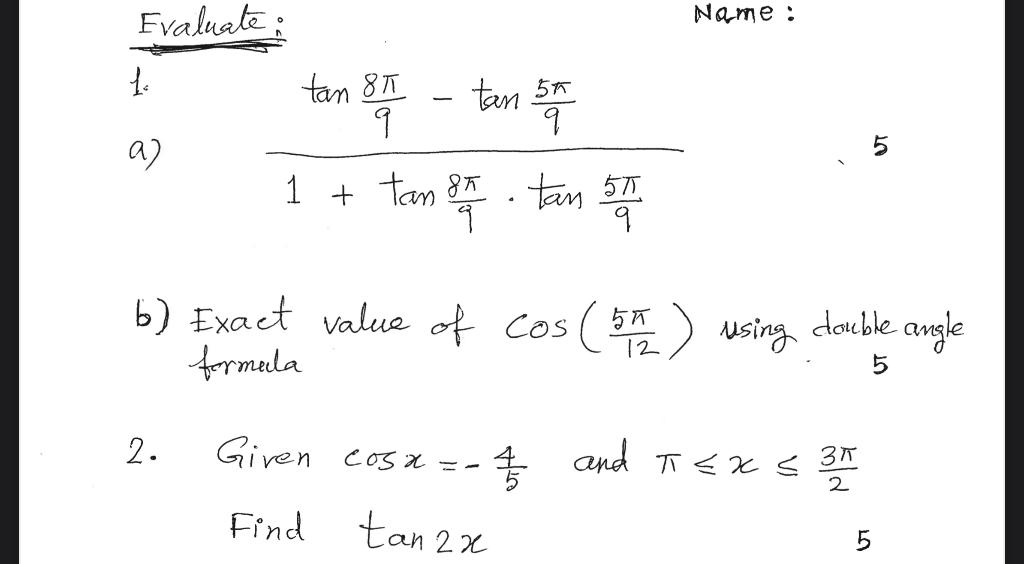 Evaluate: Name:
1.
a) (tan 8π/9 - tan 5π/9) / (1 + tan 8π/9 . tan 5π/9) 5
b) Exact value of cos(5π/12) using double angle
formula 5
2. Given cos x = - 4/5 and π ≤ x ≤ 3π/2
Find tan 2x 5